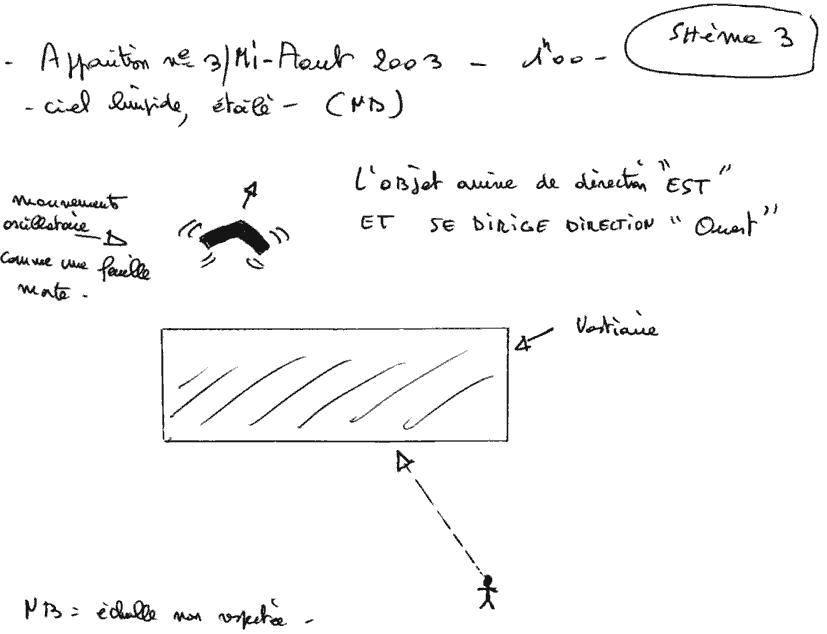 SHèma 3
- Apparition n° 3/Mi-Aout 2003 - 1h00 -
- ciel limpide, étoilé - (NB)
L'OBJet arrive de direction "EST"
ET SE DIRIGE DIRECTION "Ouest"
mouvement
oscillatoire
comme une feuille
morte -
Vestiaire
NB = échelle non respectée -